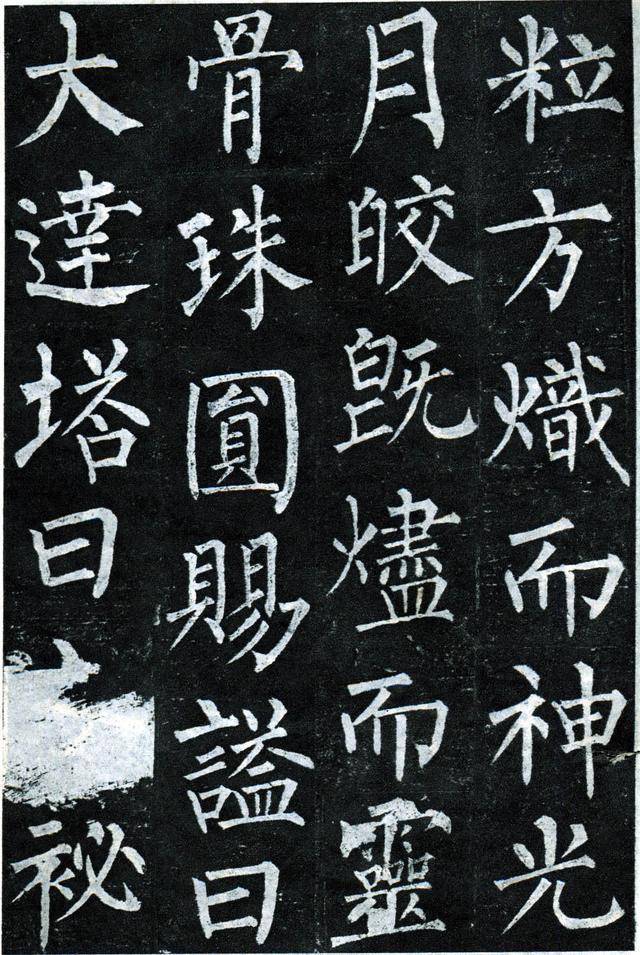 粒方熾而神光
月皎既燼而靈
骨珠圓賜謚曰
大達塔曰秘